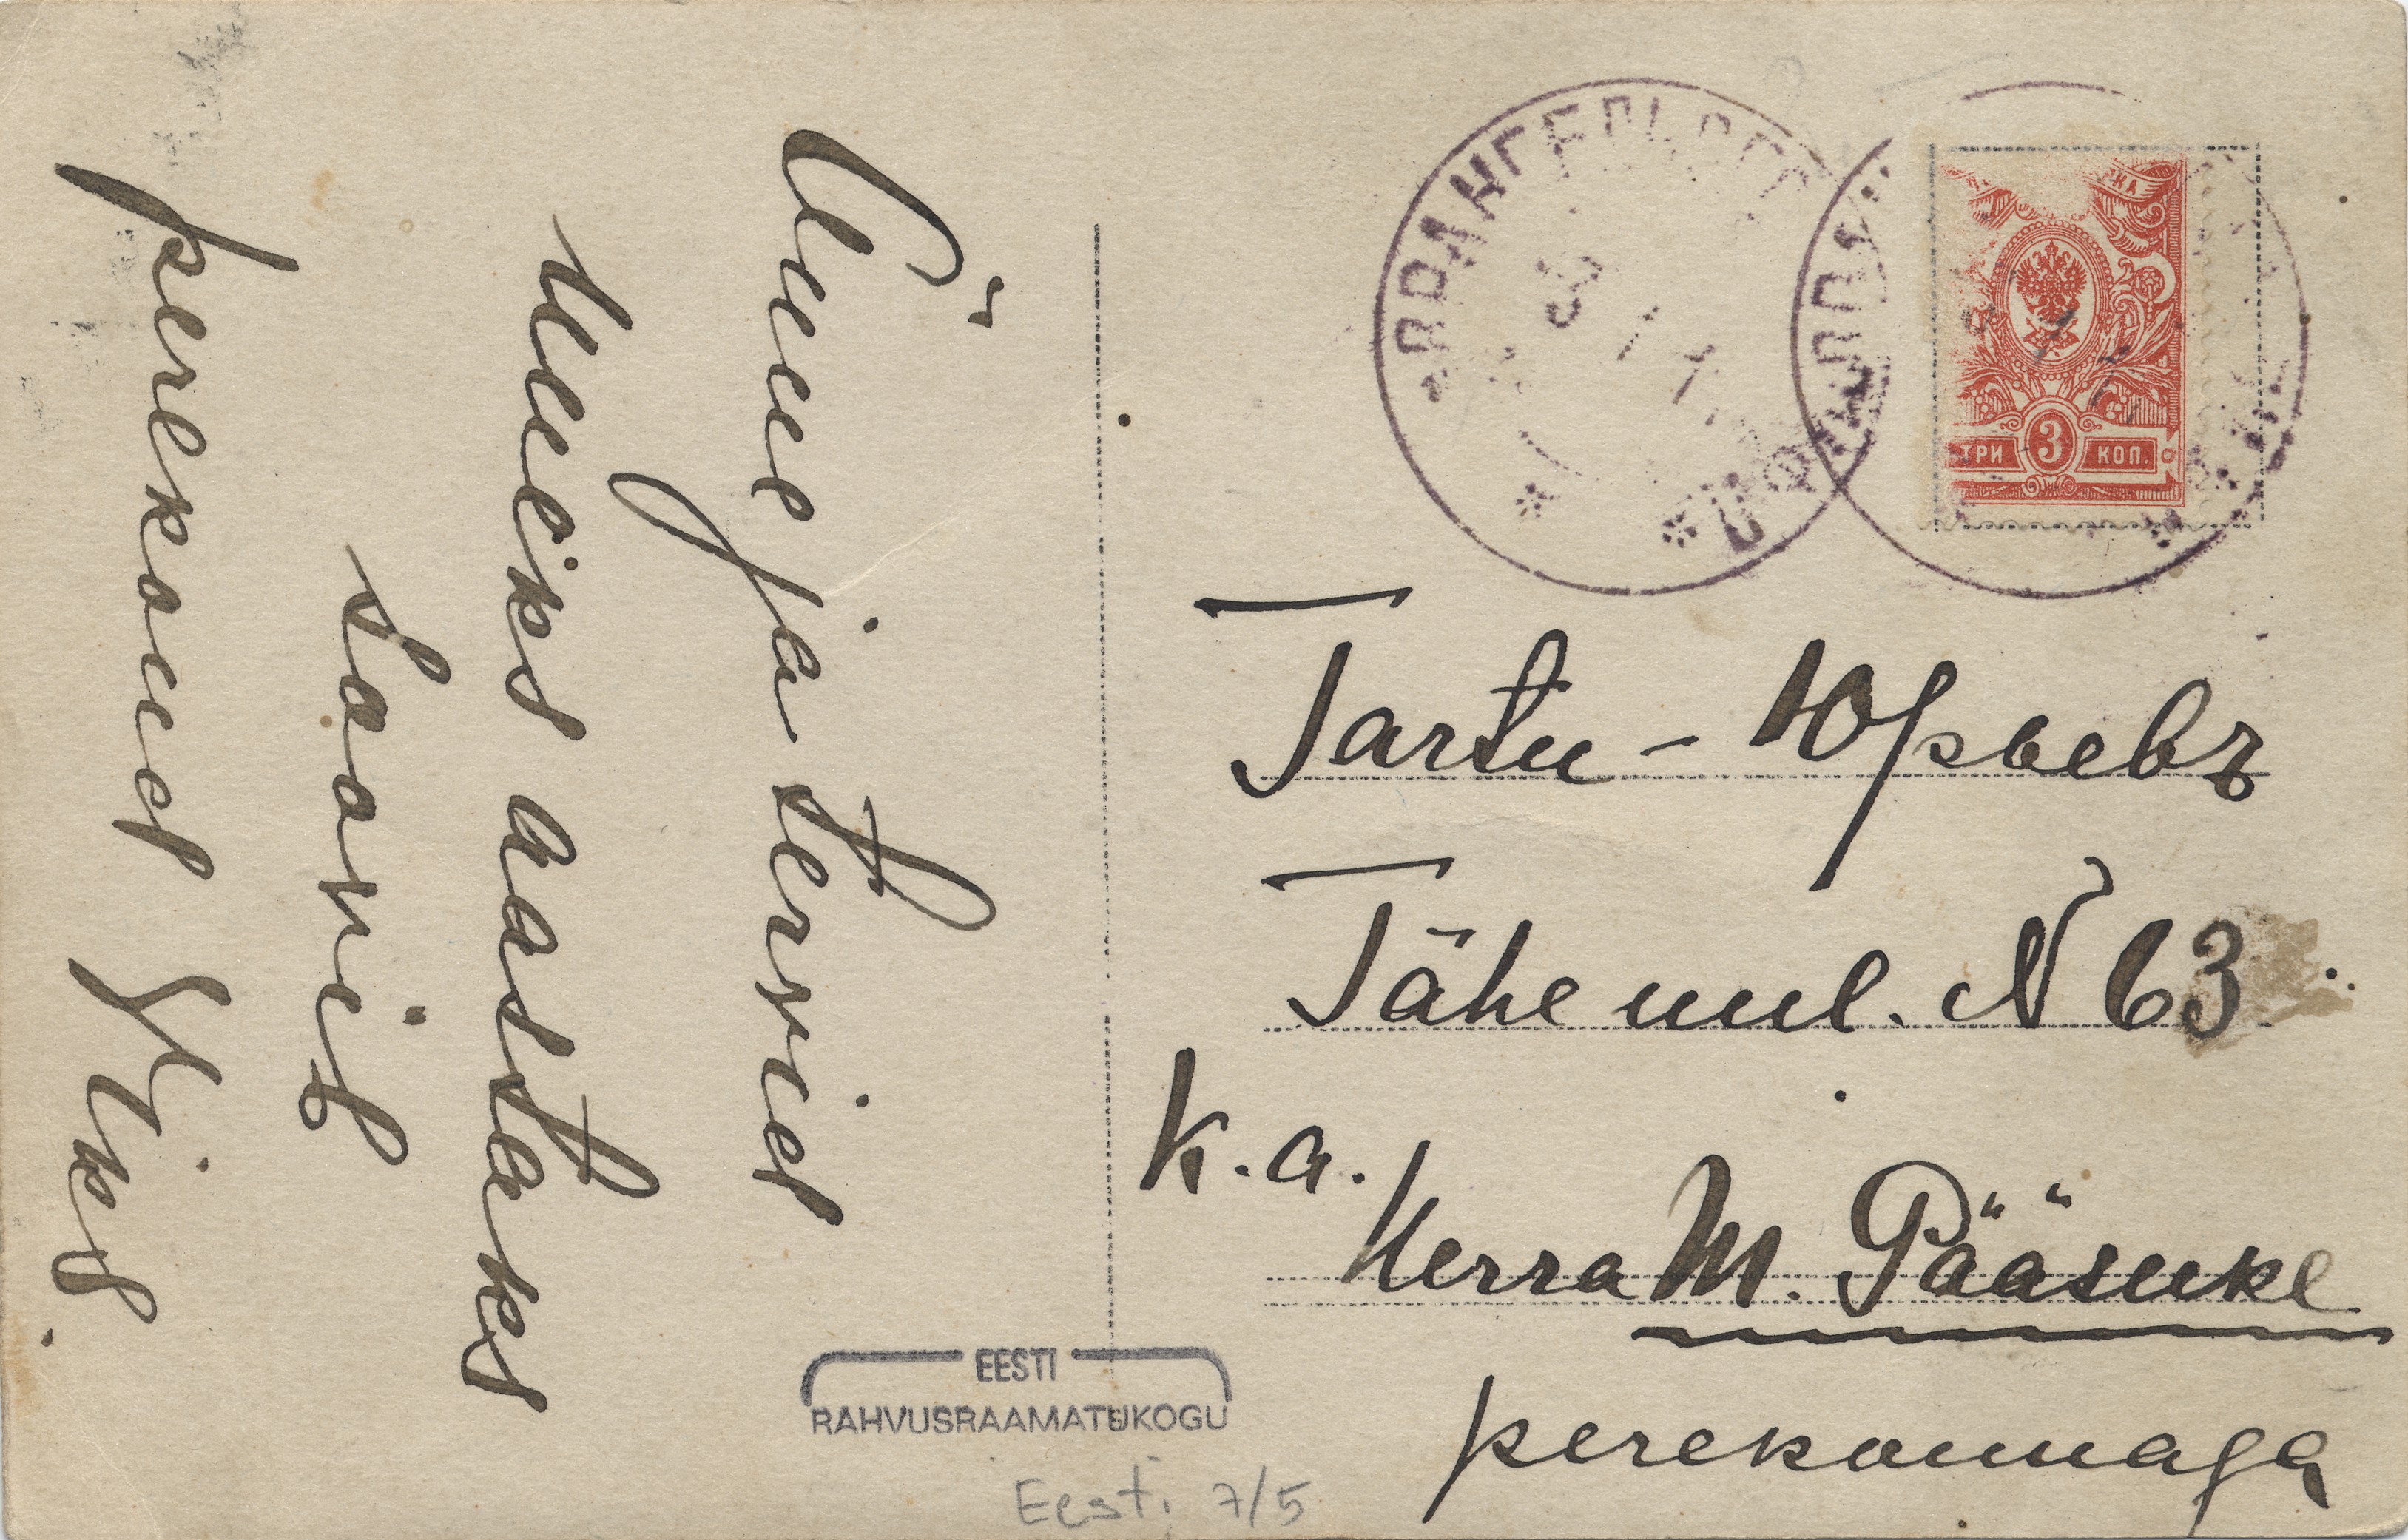 Õnne ja tervist
uueks aastaks
soovib
perekond Uks.
ВРАНГЕЛЬС
3 1 1
ТРИ 3 КОП.
Tartu – Юрьевъ
Tähe uul. N 63.
K. a.
Herra M. Pääsuke
perekonnaga
EESTI
RAHVUSRAAMATUKOGU
Eesti 7/5